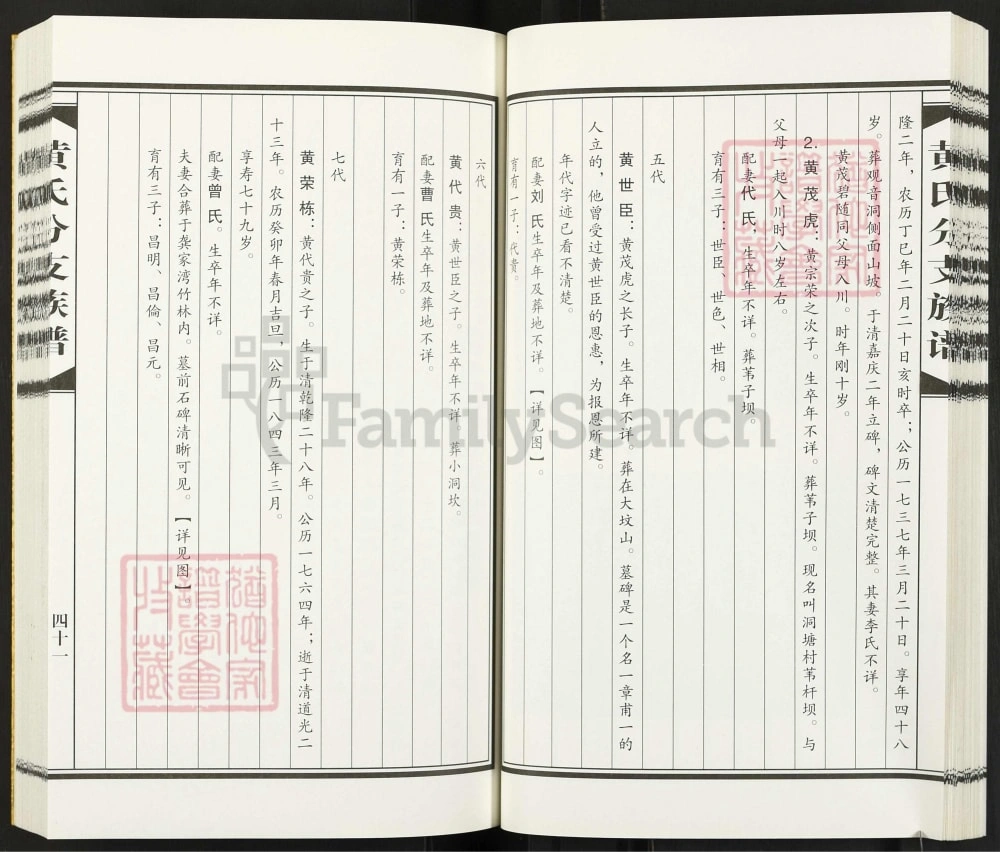 黄氏分支族谱
隆二年，农历丁巳年二月二十日亥时卒；公历一七三七年三月二十日。享年四十八
岁。葬观音洞侧面山坡。于清嘉庆二年立碑，碑文清楚完整。其妻李氏不详。
黄茂碧随同父母入川。时年刚十岁。
2.黄茂虎：黄宗荣之次子。生卒年不详。葬苇子坝。现名叫洞塘村苇杆坝。与
父母一起入川时八岁左右。
配妻代氏，生卒年不详。葬苇子坝。
育有三子：世臣、世色、世相。
五代
黄世臣：黄茂虎之长子。生卒年不详。葬在大坟山。墓碑是一个名一章甫一的
人立的，他曾受过黄世臣的恩惠，为报恩所建。
年代字迹已看不清楚。
配妻刘氏生卒年及葬地不详。【详见图】。
育有一子：代贵。
六代
黄代贵：黄世臣之子。生卒年不详。葬小洞坎。
配妻曹氏生卒年及葬地不详。
育有一子：黄荣栋。
七代
黄荣栋：黄代贵之子。生于清乾隆二十八年。公历一七六四年；逝于清道光二
十三年。农历癸卯年春月吉旦，公历一八四三年三月。
享寿七十九岁。
配妻曾氏。生卒年不详。
夫妻合葬于龚家湾竹林内。墓前石碑清晰可见。【详见图】。
育有三子：昌明、昌倫、昌元。
黄氏分支族谱
四十一
FamilySearch